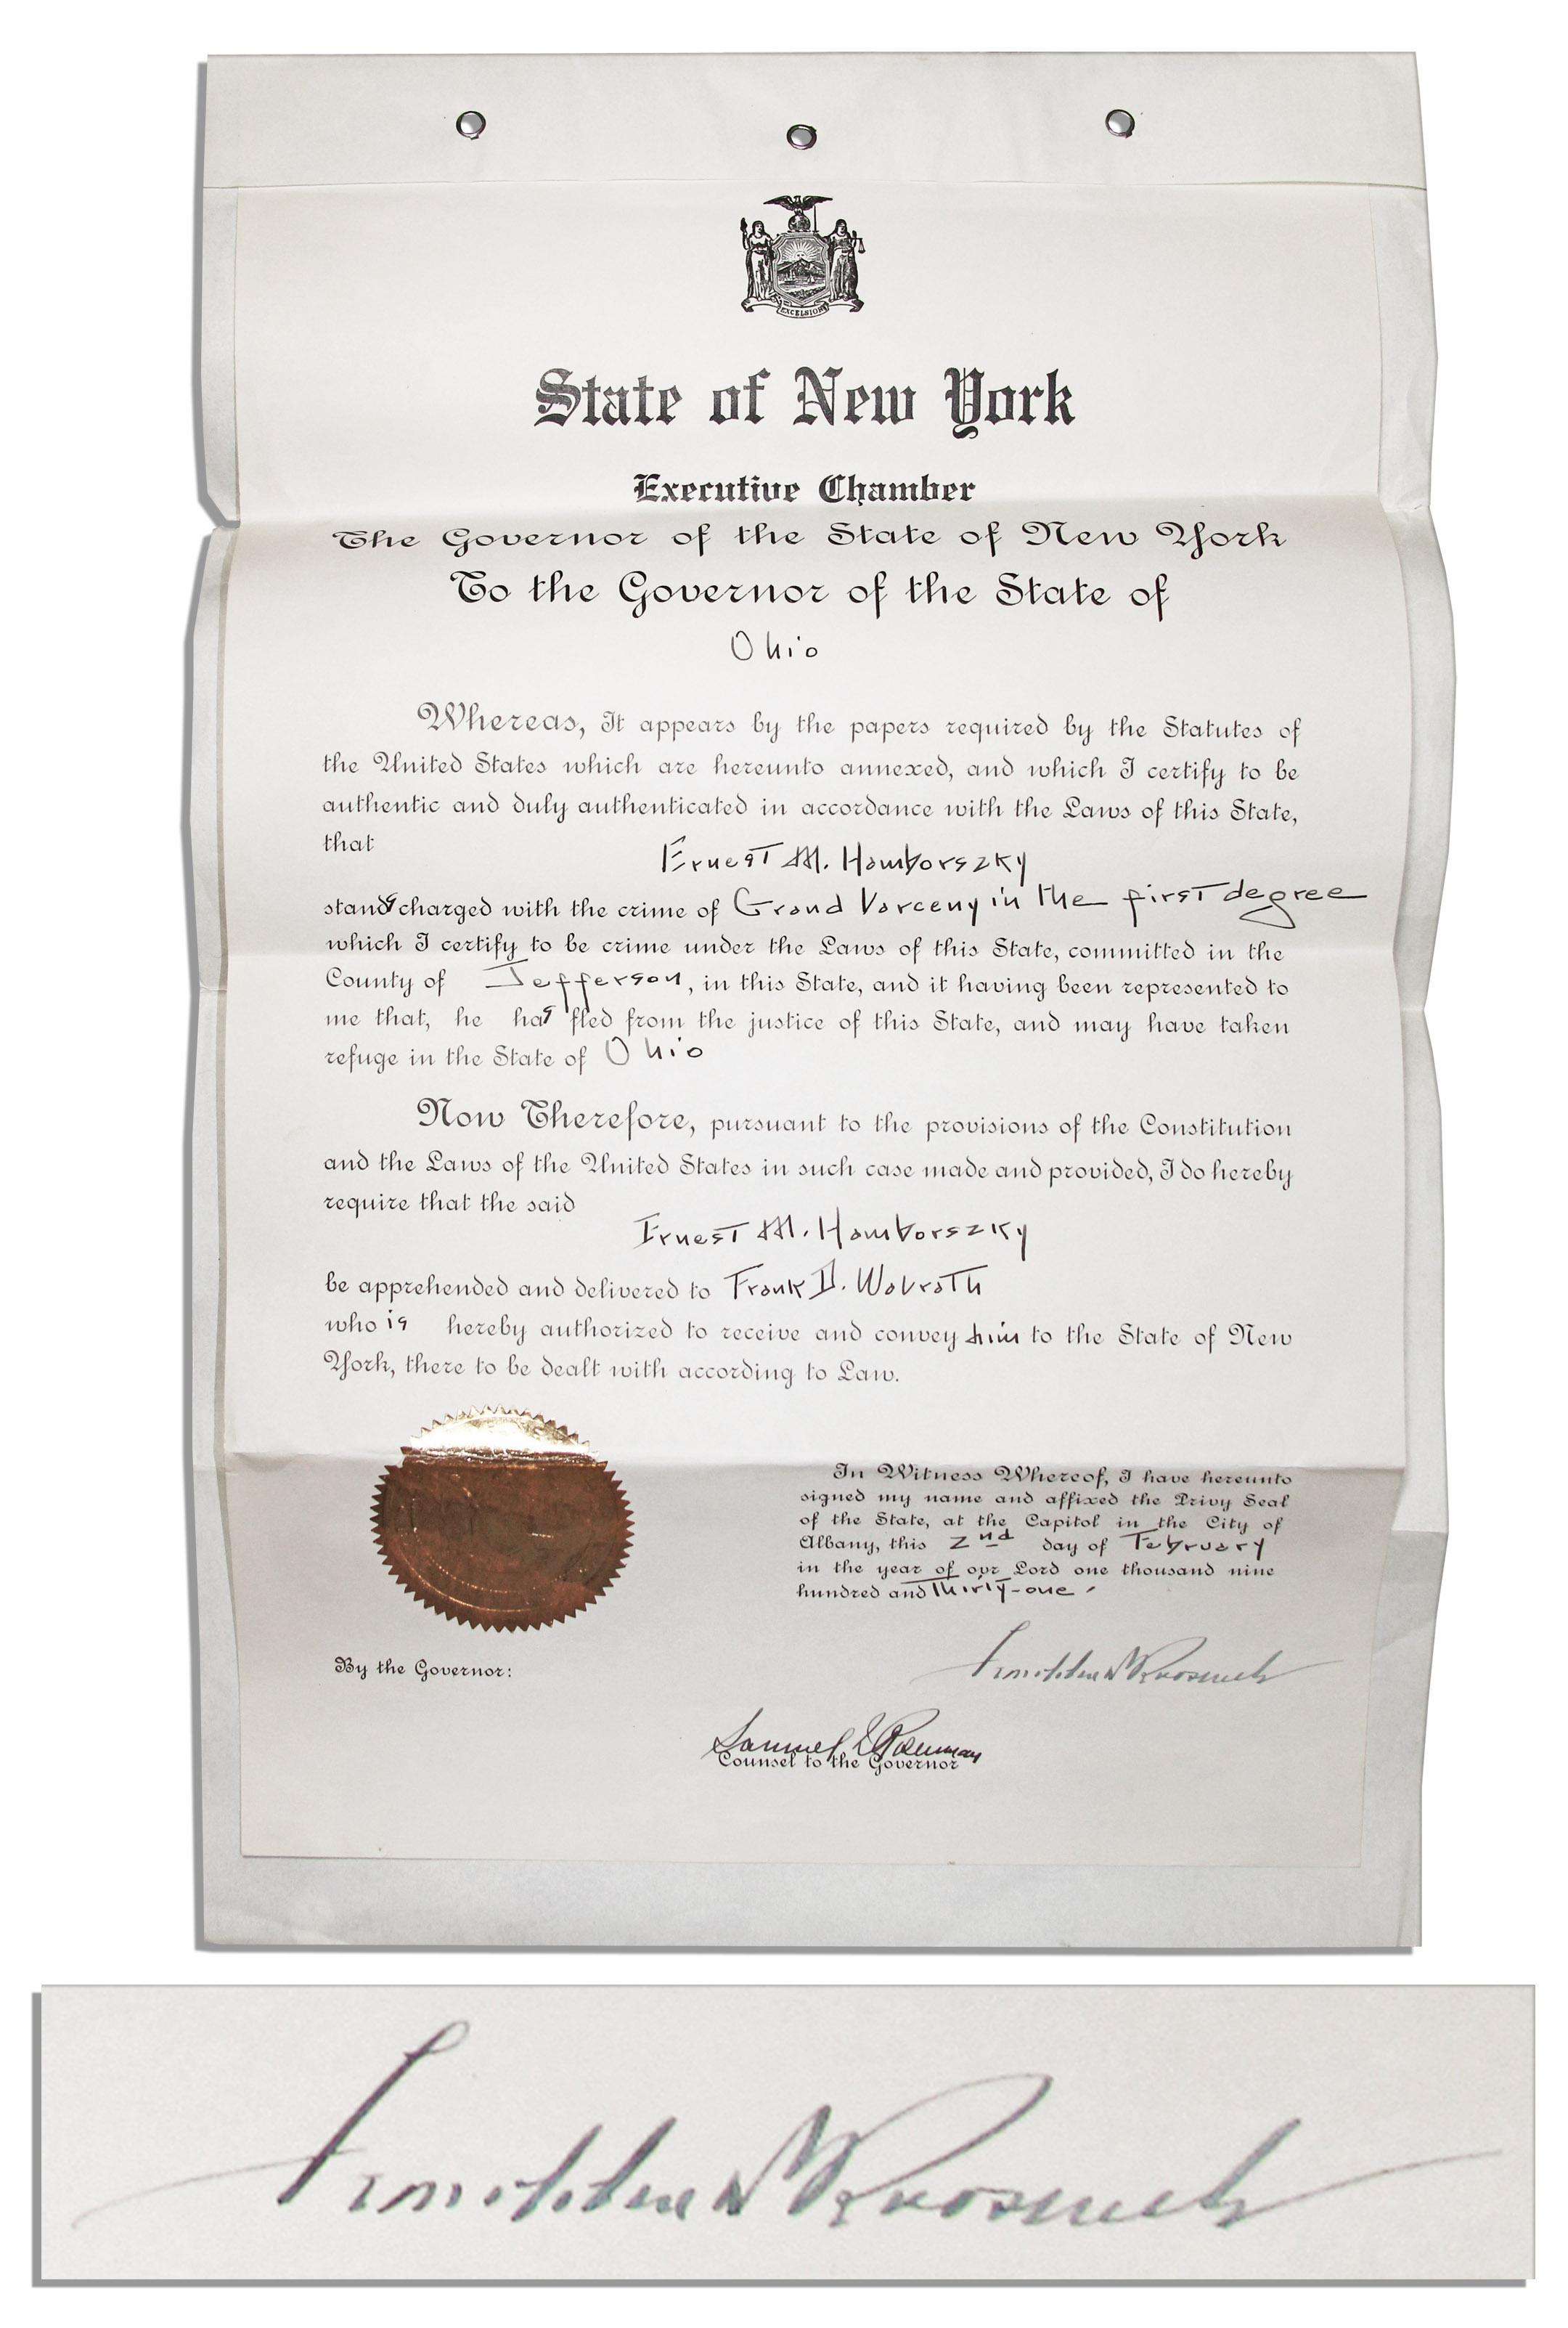 EXCELSIOR
State of New York
Executive Chamber
The Governor of the State of New York
To the Governor of the State of
Ohio
Whereas, It appears by the papers required by the Statutes of
the United States which are hereunto annexed, and which I certify to be
authentic and duly authenticated in accordance with the Laws of this State,
that
Ernest M. Hamborszky
stands charged with the crime of Grand Larceny in the first degree
which I certify to be crime under the Laws of this State, committed in the
County of Jefferson, in this State, and it having been represented to
me that, he has fled from the justice of this State, and may have taken
refuge in the State of Ohio
Now Therefore, pursuant to the provisions of the Constitution
and the Laws of the United States in such case made and provided, I do hereby
require that the said
Ernest M. Hamborszky
be apprehended and delivered to Frank D. Walrath
who is hereby authorized to receive and convey him to the State of New
York, there to be dealt with according to Law.
In Witness Whereof, I have hereunto
signed my name and affixed the Privy Seal
of the State, at the Capitol in the City of
Albany, this 2nd day of February
in the year of our Lord one thousand nine
hundred and thirty-one.
Franklin D Roosevelt
By the Governor:
Samuel I. Rosenman
Counsel to the Governor
Franklin D Roosevelt